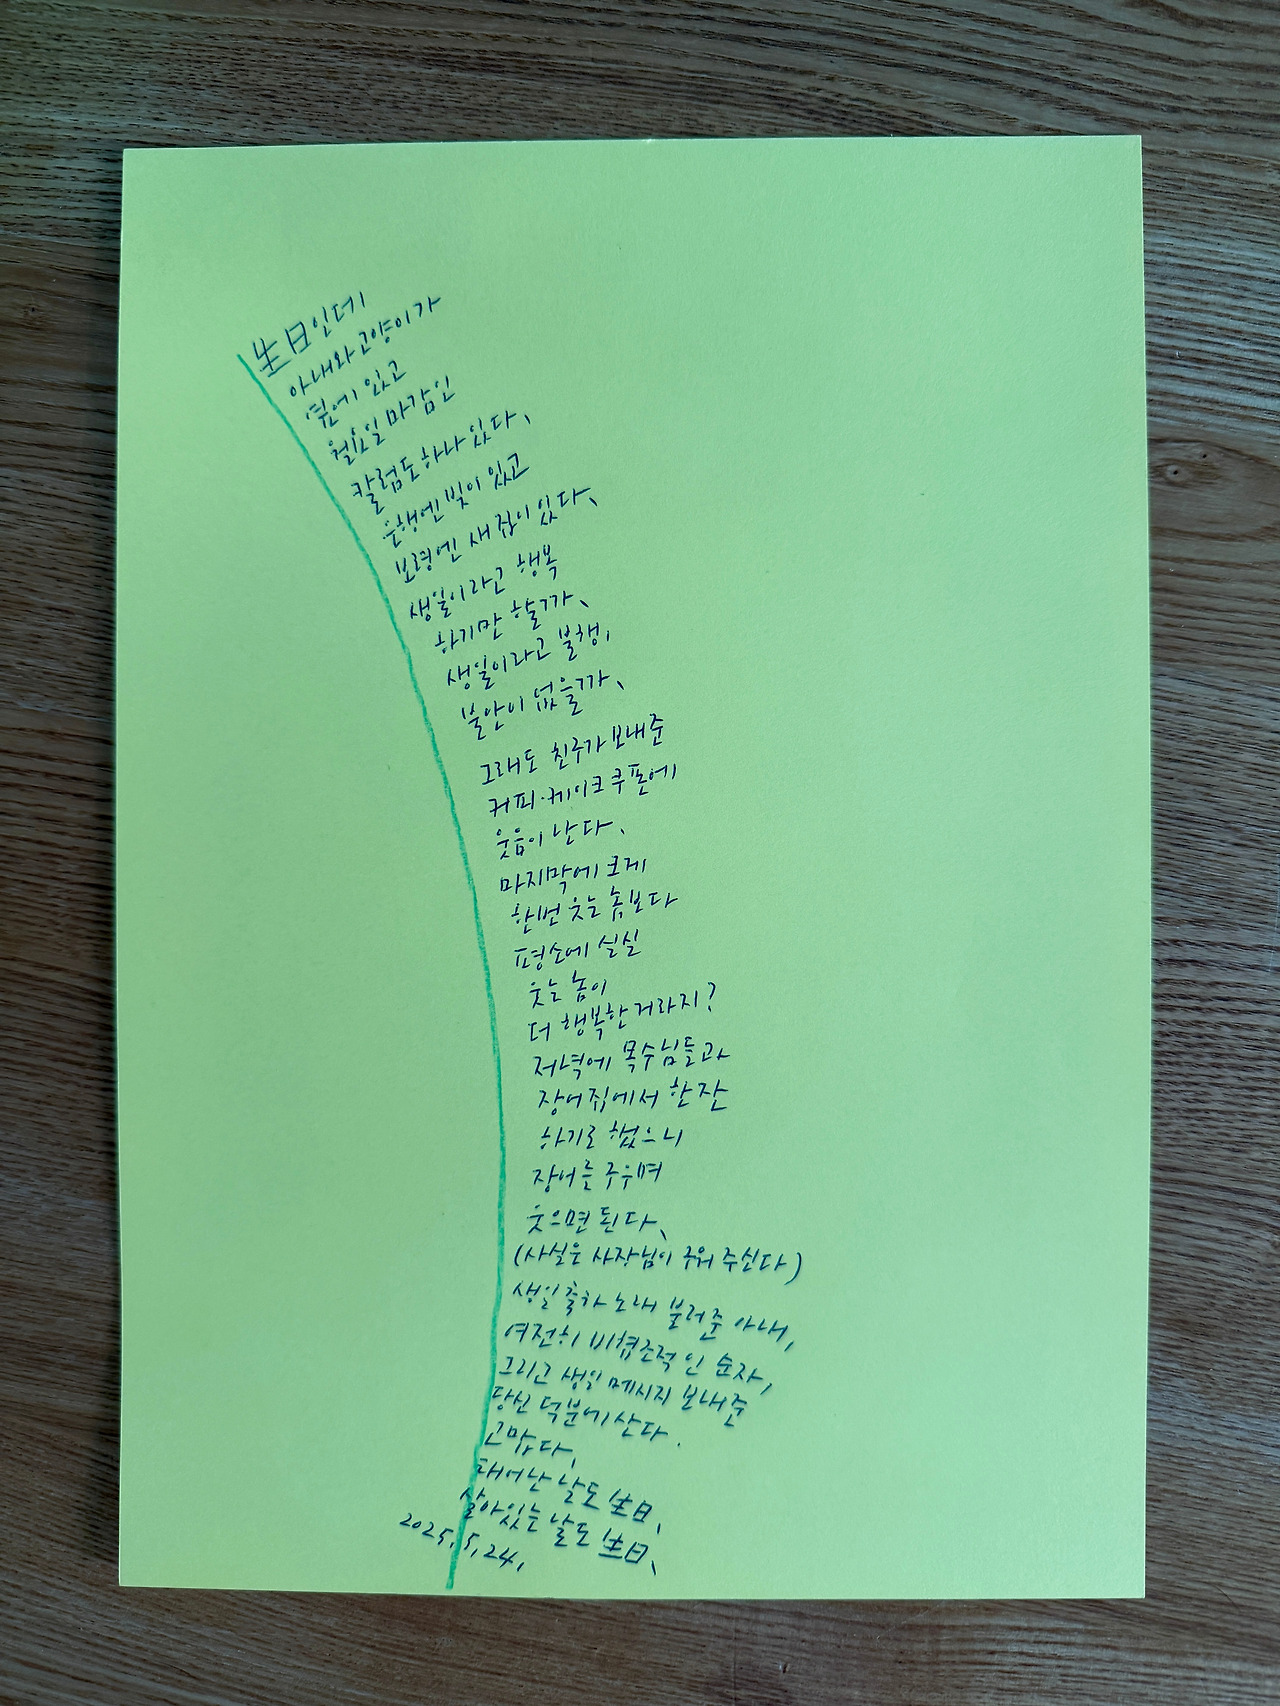 生日인데
아내와 고양이가
옆에 있고
월요일 마감인
칼럼도 하나 있다.
은행엔 빚이 있고
보령엔 새 집이 있다.
생일이라고 행복
하기만 할까.
생일이라고 불행,
불안이 없을까.
그래도 친구가 보내준
커피·케이크 쿠폰에
웃음이 난다.
마지막에 크게
한번 웃는 놈보다
평소에 실실
웃는 놈이
더 행복한 거라지?
저녁에 목수님들과
장어집에서 한잔
하기로 했으니
장어를 구우며
웃으면 된다.
(사실은 사장님이 구워 주신다)
생일축하 노래 불러준 아내,
여전히 비협조적인 순자,
그리고 생일 메시지 보내준
당신 덕분에 산다.
고맙다.
태어난 날도 生日,
살아있는 날도 生日.
2025. 5. 24.